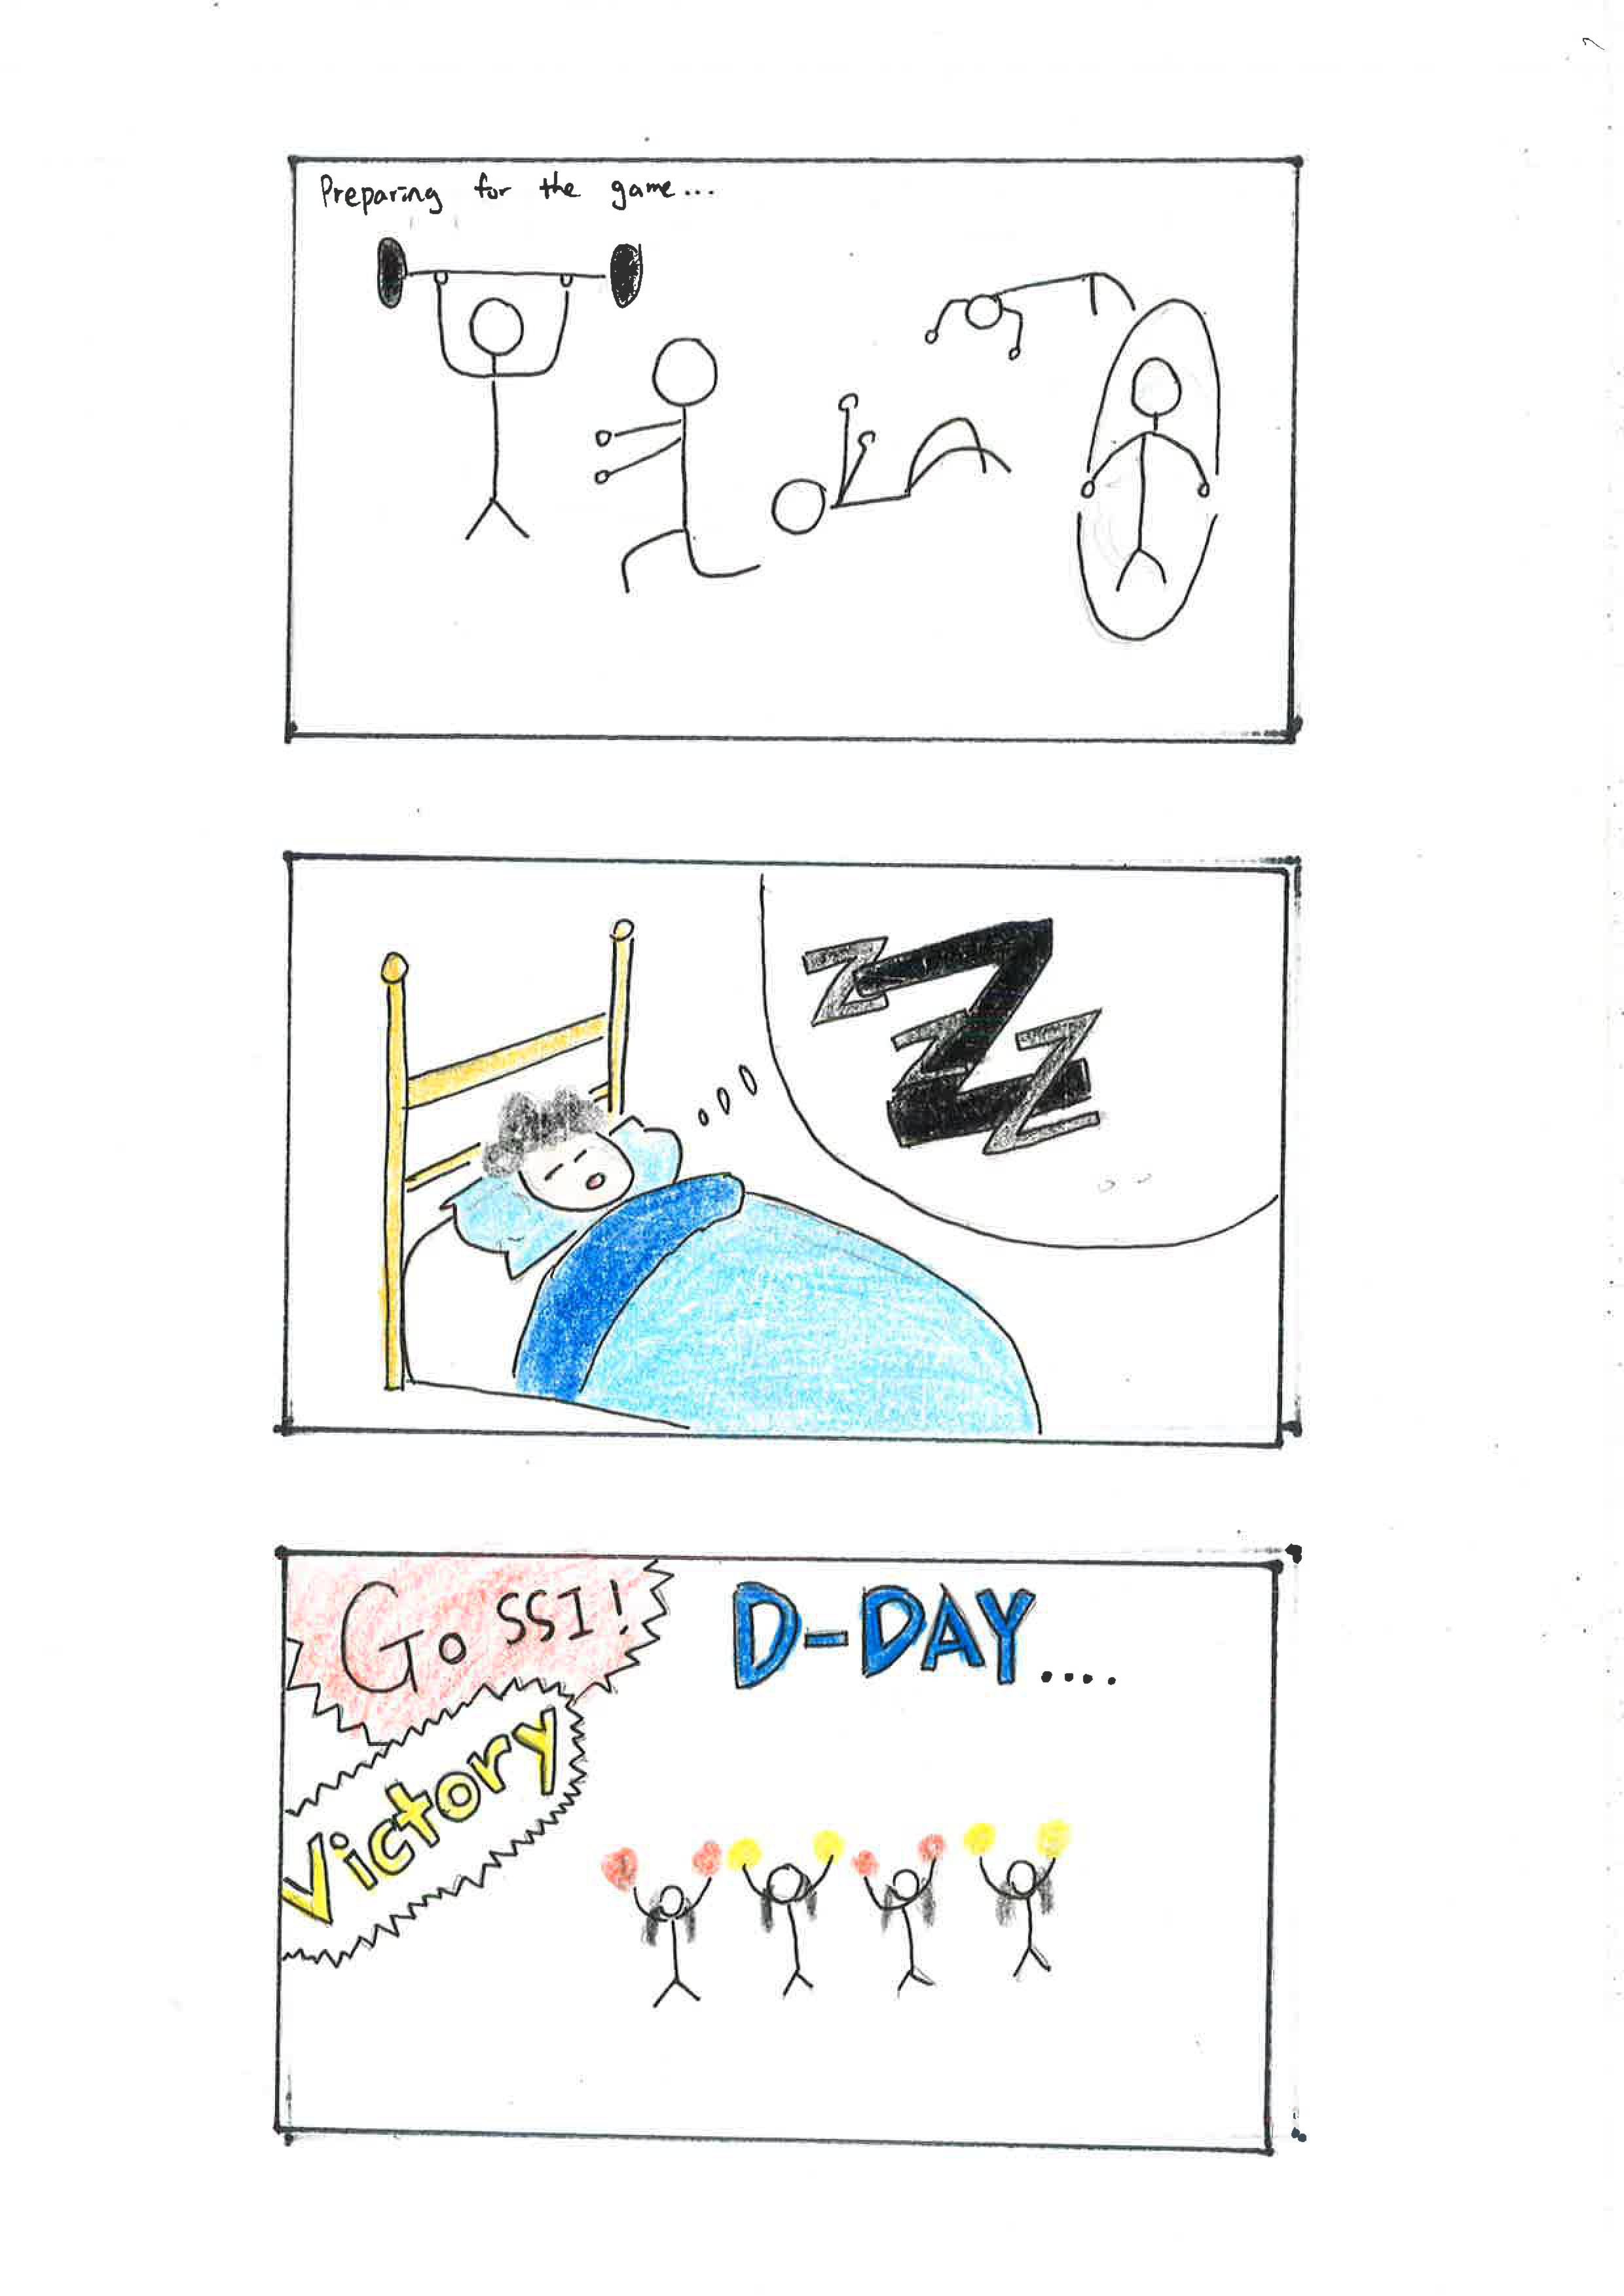 Preparing for the game...
Z Z Z Z
Go SSI!
D-DAY....
Victory